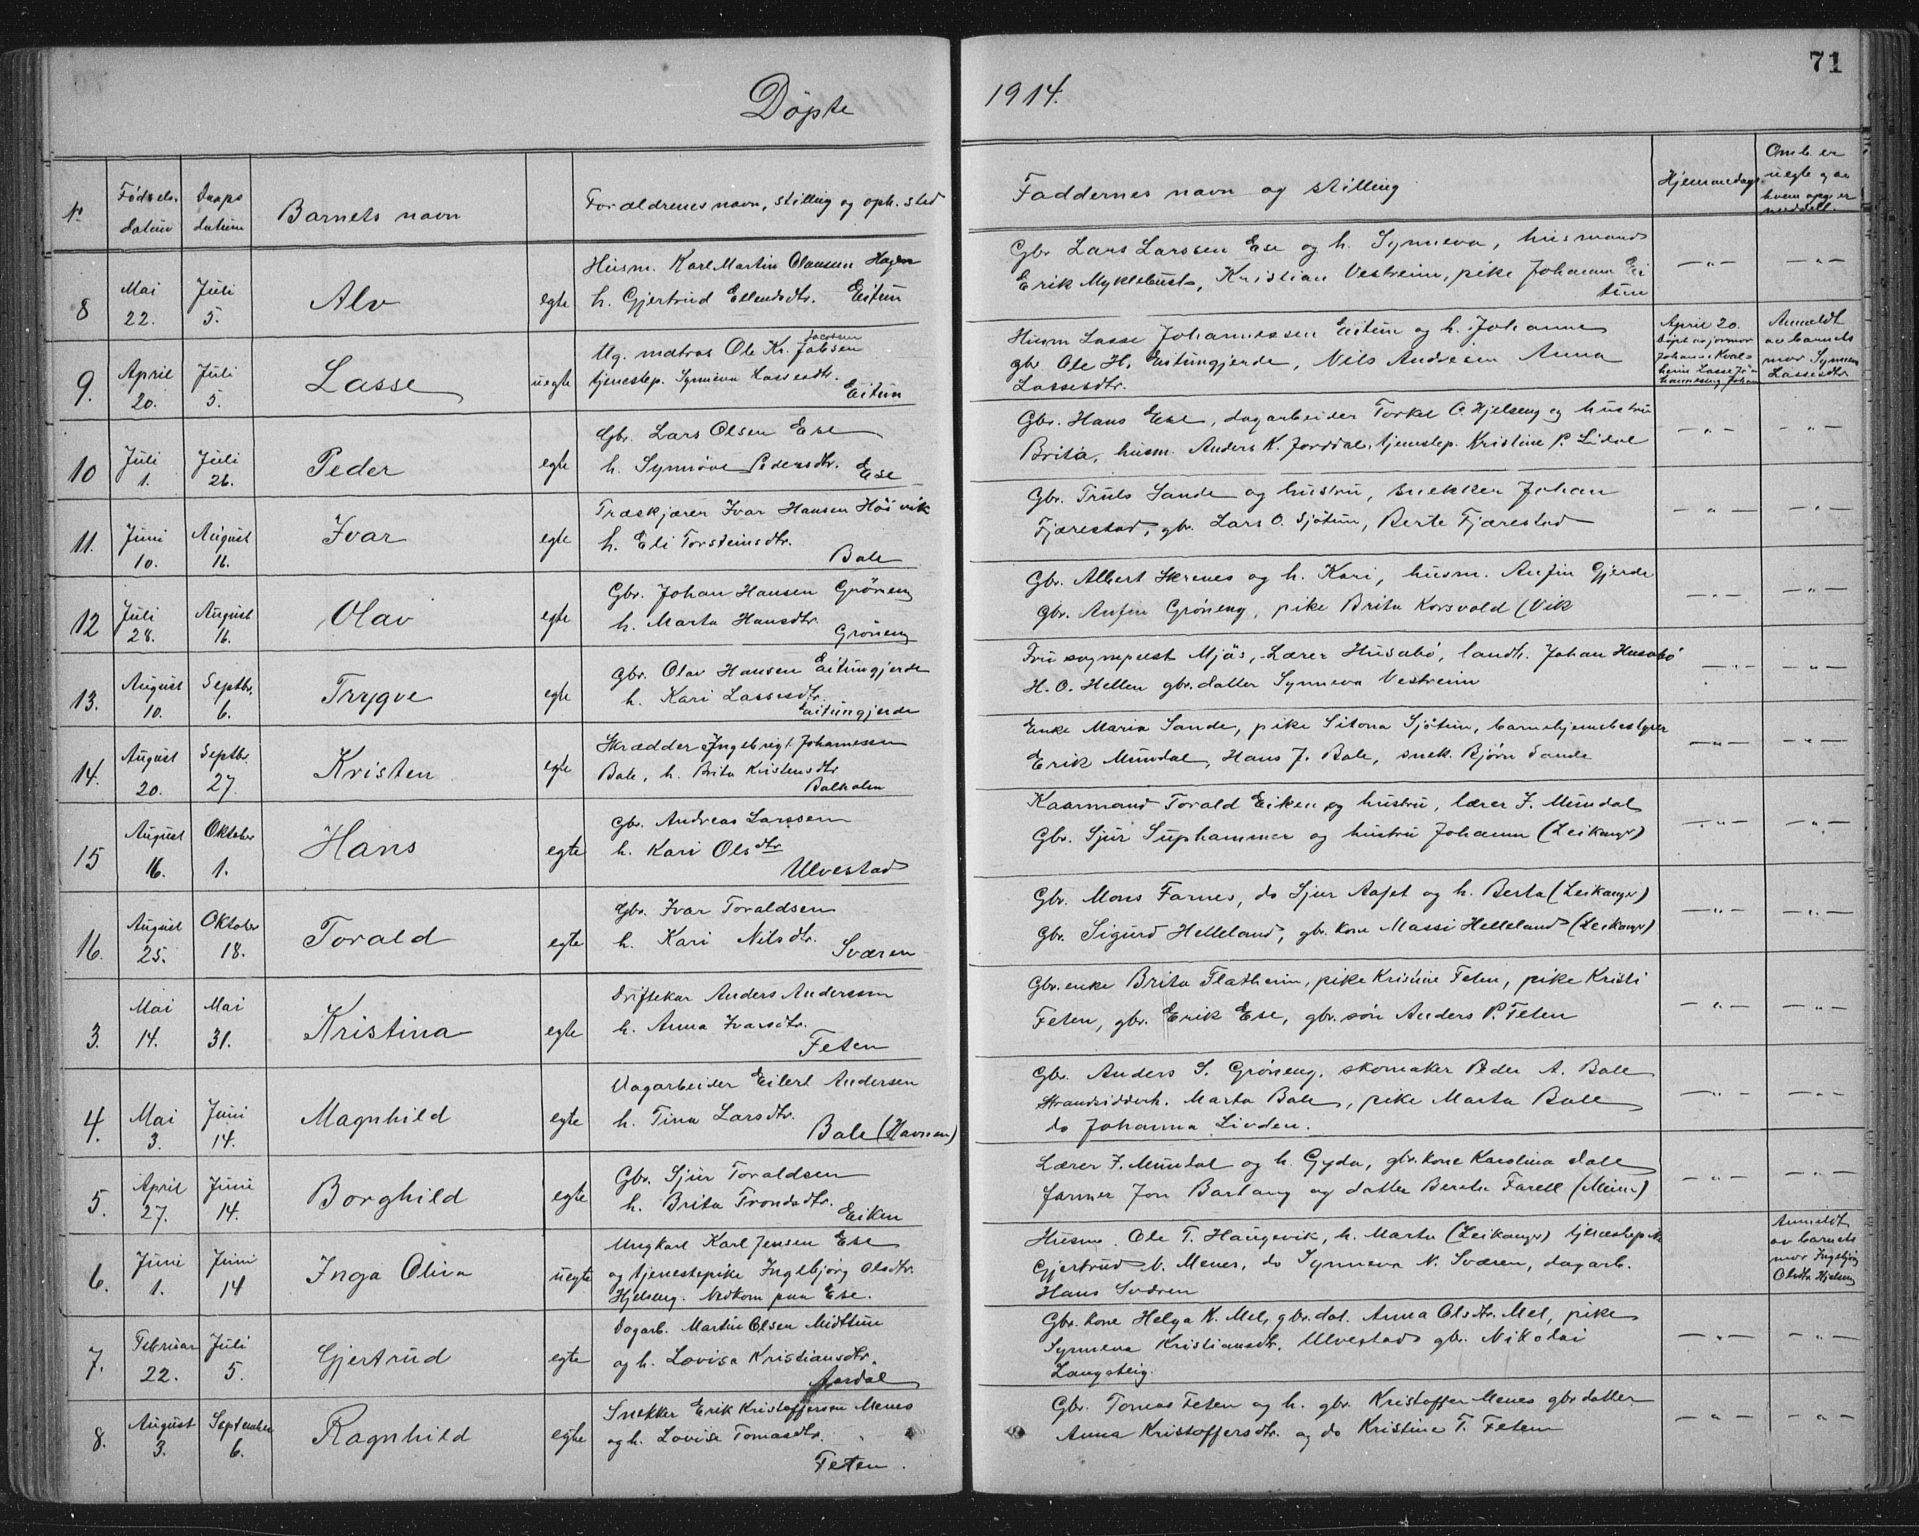 71
Döpte 1914.
No Fødsels- datum Daaps datum Barnets navn Forældrenes navn, stilling og oph. sted Faddernes navn og stilling Hjemmedaap Om b. er uegte og av hvem opg. er meddelt.
8 Mai 22. Juli 5. Alv egte Husm. Karl Martin Olausen Hagen
h. Gjertrud Ellendsdtr. Eitun
Gbr. Lars Larssen Ese og h. Synneva, husmand
Erik Myklebust, Kristian Vestreim, pike Johanna Ei
tun
9. April 20. Juli 5. Lasse uegte Ug. matros Ole Kr. Jakobsen
tjenestep. Synneva Lassesdtr.
Eitun
Husm Lasse Johannessen Eitun og h. Johanne
gbr. Ole H. Eitungjerde, Nils Andresen Anna
Lassesdtr.
April 20.
Döpt av jormor
Anmeldt
av barnets
mor Synneva
Lassesdtr.
10 Juli 1. Juli 26. Peder egte Gbr. Lars Olsen Ese
h. Synnöve Pedersdtr. Ese
Gbr. Hans Ese, dagarbeider Torkel O. Hjelseng og hustru
Brita, husm. Anders K. Jorddal, tjenestep. Kristine P. Lidal
11. Juni 10. August 16. Ivar egte Træskjærer Ivar Hansen Höivik
h. Eli Torsteinsdtr.
Bale
Gbr. Truls Sande og hustru, snekker Johan
Fjærestad, gbr. Lars O. Sjötun, Berte Fjærestad
12 Juli 28. August 16. Olav egte Gbr. Johan Hansen Gröneng
h. Marta Hansdtr.
Gröneng
Gbr. Albert Skrenes og h. Kari, husm. Anfin Gjerde
gbr. Anfin Gröneng, pike Brita Korsvold (Vik
13. August 10. Septbr. 6. Trygve egte Gbr. Olav Hansen Eitungjerde
h. Kari Lassesdtr.
Eitungjerde
Fru sogneprest Mjös, Lærer Husabö, landh. Johan Husabö
H. O. Hellen gbr. datter Synneva Vestreim
14. August 20. Septbr. 27. Kristen egte Skrædder Ingebrigt Johannesen
Bale, h. Brita Kristensdtr
Balholm
Enke Maria Sande, pike Sitona Sjötun, barnehjemsbestyrer
Erik Mundal, Hans J. Bale, snek. Bjørn Sande
15 August 16. Oktober 1. Hans egte Gbr. Andreas Larssen
h. Kari Olsdtr
Ulvestad
Kaarmand Torald Eiken og hustru, lærer J. Mundal
Gbr. Sjur Suphammer og hustru Johanna (Leikanger)
16. August 25. Oktober 18. Torald egte Gbr. Ivar Toraldsen
h. Kari Nilsdtr.
Sværen
Gbr. Mons Farnes, do Sjur Aaset og h. Berta (Leikanger)
Gbr. Sigurd Helleland, gbr. kone Massi Helleland (Leikanger)
3. Mai 14. Mai 31. Kristina egte Driftekar Anders Anderssen
h. Anna Ivarsdtr.
Feten
Gbr. enke Brita Flatheim, pike Kristine Feten, pike Kristi
Feten, gbr. Erik Ese, gbr. søn Anders P. Feten
4. Mai 3. Juni 14. Magnhild egte Dagarbeider Eilert Andersen
h. Tina Larsdtr.
Bale (Havnen)
Gbr. Anders S. Gröneng, skomaker Peder A. Bale
Strandsidderh. Marta Bale, pike Marta Bale
do Johanna Linden.
5. April 27. Juni 14. Borghild egte Gbr. Sjur Toraldsen
h. Brita Trondsdtr.
Eiken
Lærer J. Mundal og h. Gyda, gbr. kone Karolina Dale
farmer Jon Barlaug og datter Bertha Farell (Minn)
6. Juni 1. Juni 14 Inga Oliva uegte Ungkarl Karl Jensen Ese
og tjenestepike Ingebjorg Olsdtr.
Hjelseng. Nedkom paa Ese.
Husm. Ole T. Haugsvik, h. Marta (Leikanger) tjenestepike
Gjertrud M. Menes, do Synneva N. Sværen, dagarb.
Hans Sværen
Anmeldt
av barnets
mor Ingebjörg
Olsdtr Hjelseng
7. Februar 22. Juli 5. Gjertrud egte Dagarb. Martin Olsen Midttun
og h. Lovisa Kristiansdtr.
Aardal
Gbr. kone Helga K. Mel, gbr. dat. Anna Olsdtr. Mel, pike
Synneva Kristiansdtr. Ulvestad gbr. Nikolai
Langsteig.
8. August 3. September 6. Ragnhild egte Snekker Erik Kristoffersen Menes
og h. Lovise Tomasdtr.
Feten.
Gbr. Tomas Feten og h. gbr. Kristoffer Menes gbr datter
Anna Kristoffersdtr. og do Kristine T. Feten